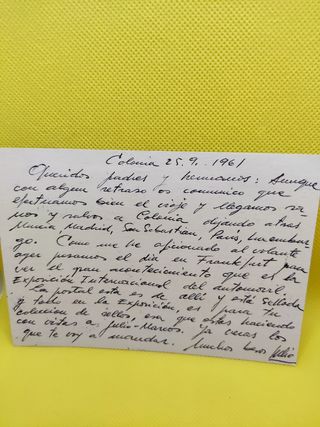 Colonia 25.9.-1961
Queridos padres y hermanos: Aunque
con algun retraso os comunico que
efectuamos bien el viaje y llegamos sa-
nos y salvos a Colonia dejando atras
Murcia, Madrid, San Sebastian, Paris, Luxembur
go. Como me he aficionado al volante
ayer pasamos el dia en Frankfurt para
ver el gran acontecimiento que es la
Exposición Internacional del automovil
La postal esta es de alli y está sellada
y todo en la Exposición, es para tu
colección de sellos, esa que estas haciendo
con vistas a Julio-Marcos. Ya veras los
que te voy a mandar. Muchos besos Julio